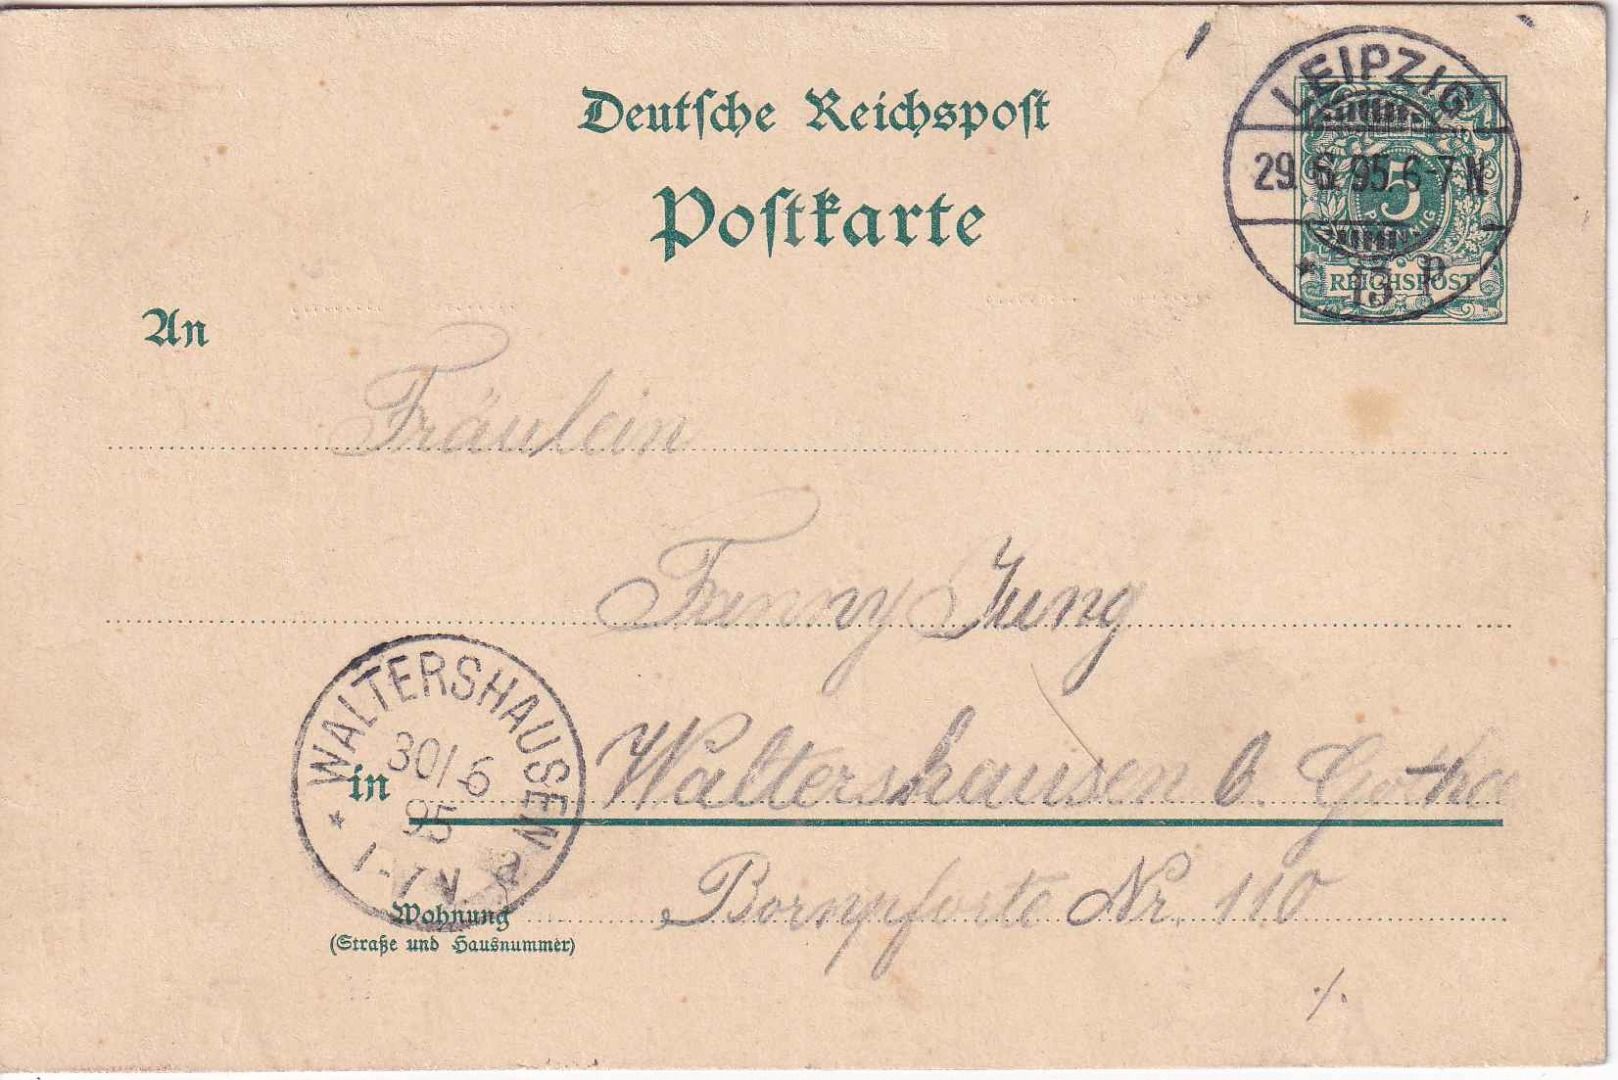 Deutsche Reichspost
Postkarte
LEIPZIG
29.6.95.6-7N
* 13 P
5
REICHSPOST
An
Fräulein
Fanny Jung
WALTERSHAUSEN
30/6
95
in Waltershausen b. Gotha
Wohnung Bornpforte Nr. 110
(Straße und Hausnummer)